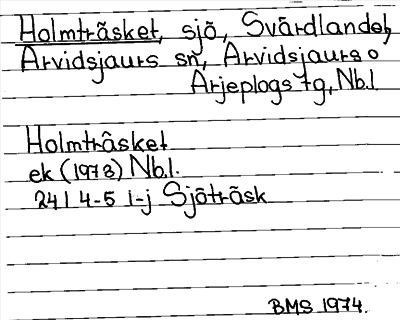 Holmträsket, sjö, Svärdlandet,
Arvidsjaurs sn, Arvidsjaurs o
Arjeplogs tg, Nb.l.
Holmträsket
ek (1973) Nb.l.
24I 4-5 i-j Sjöträsk
BMS 1974.